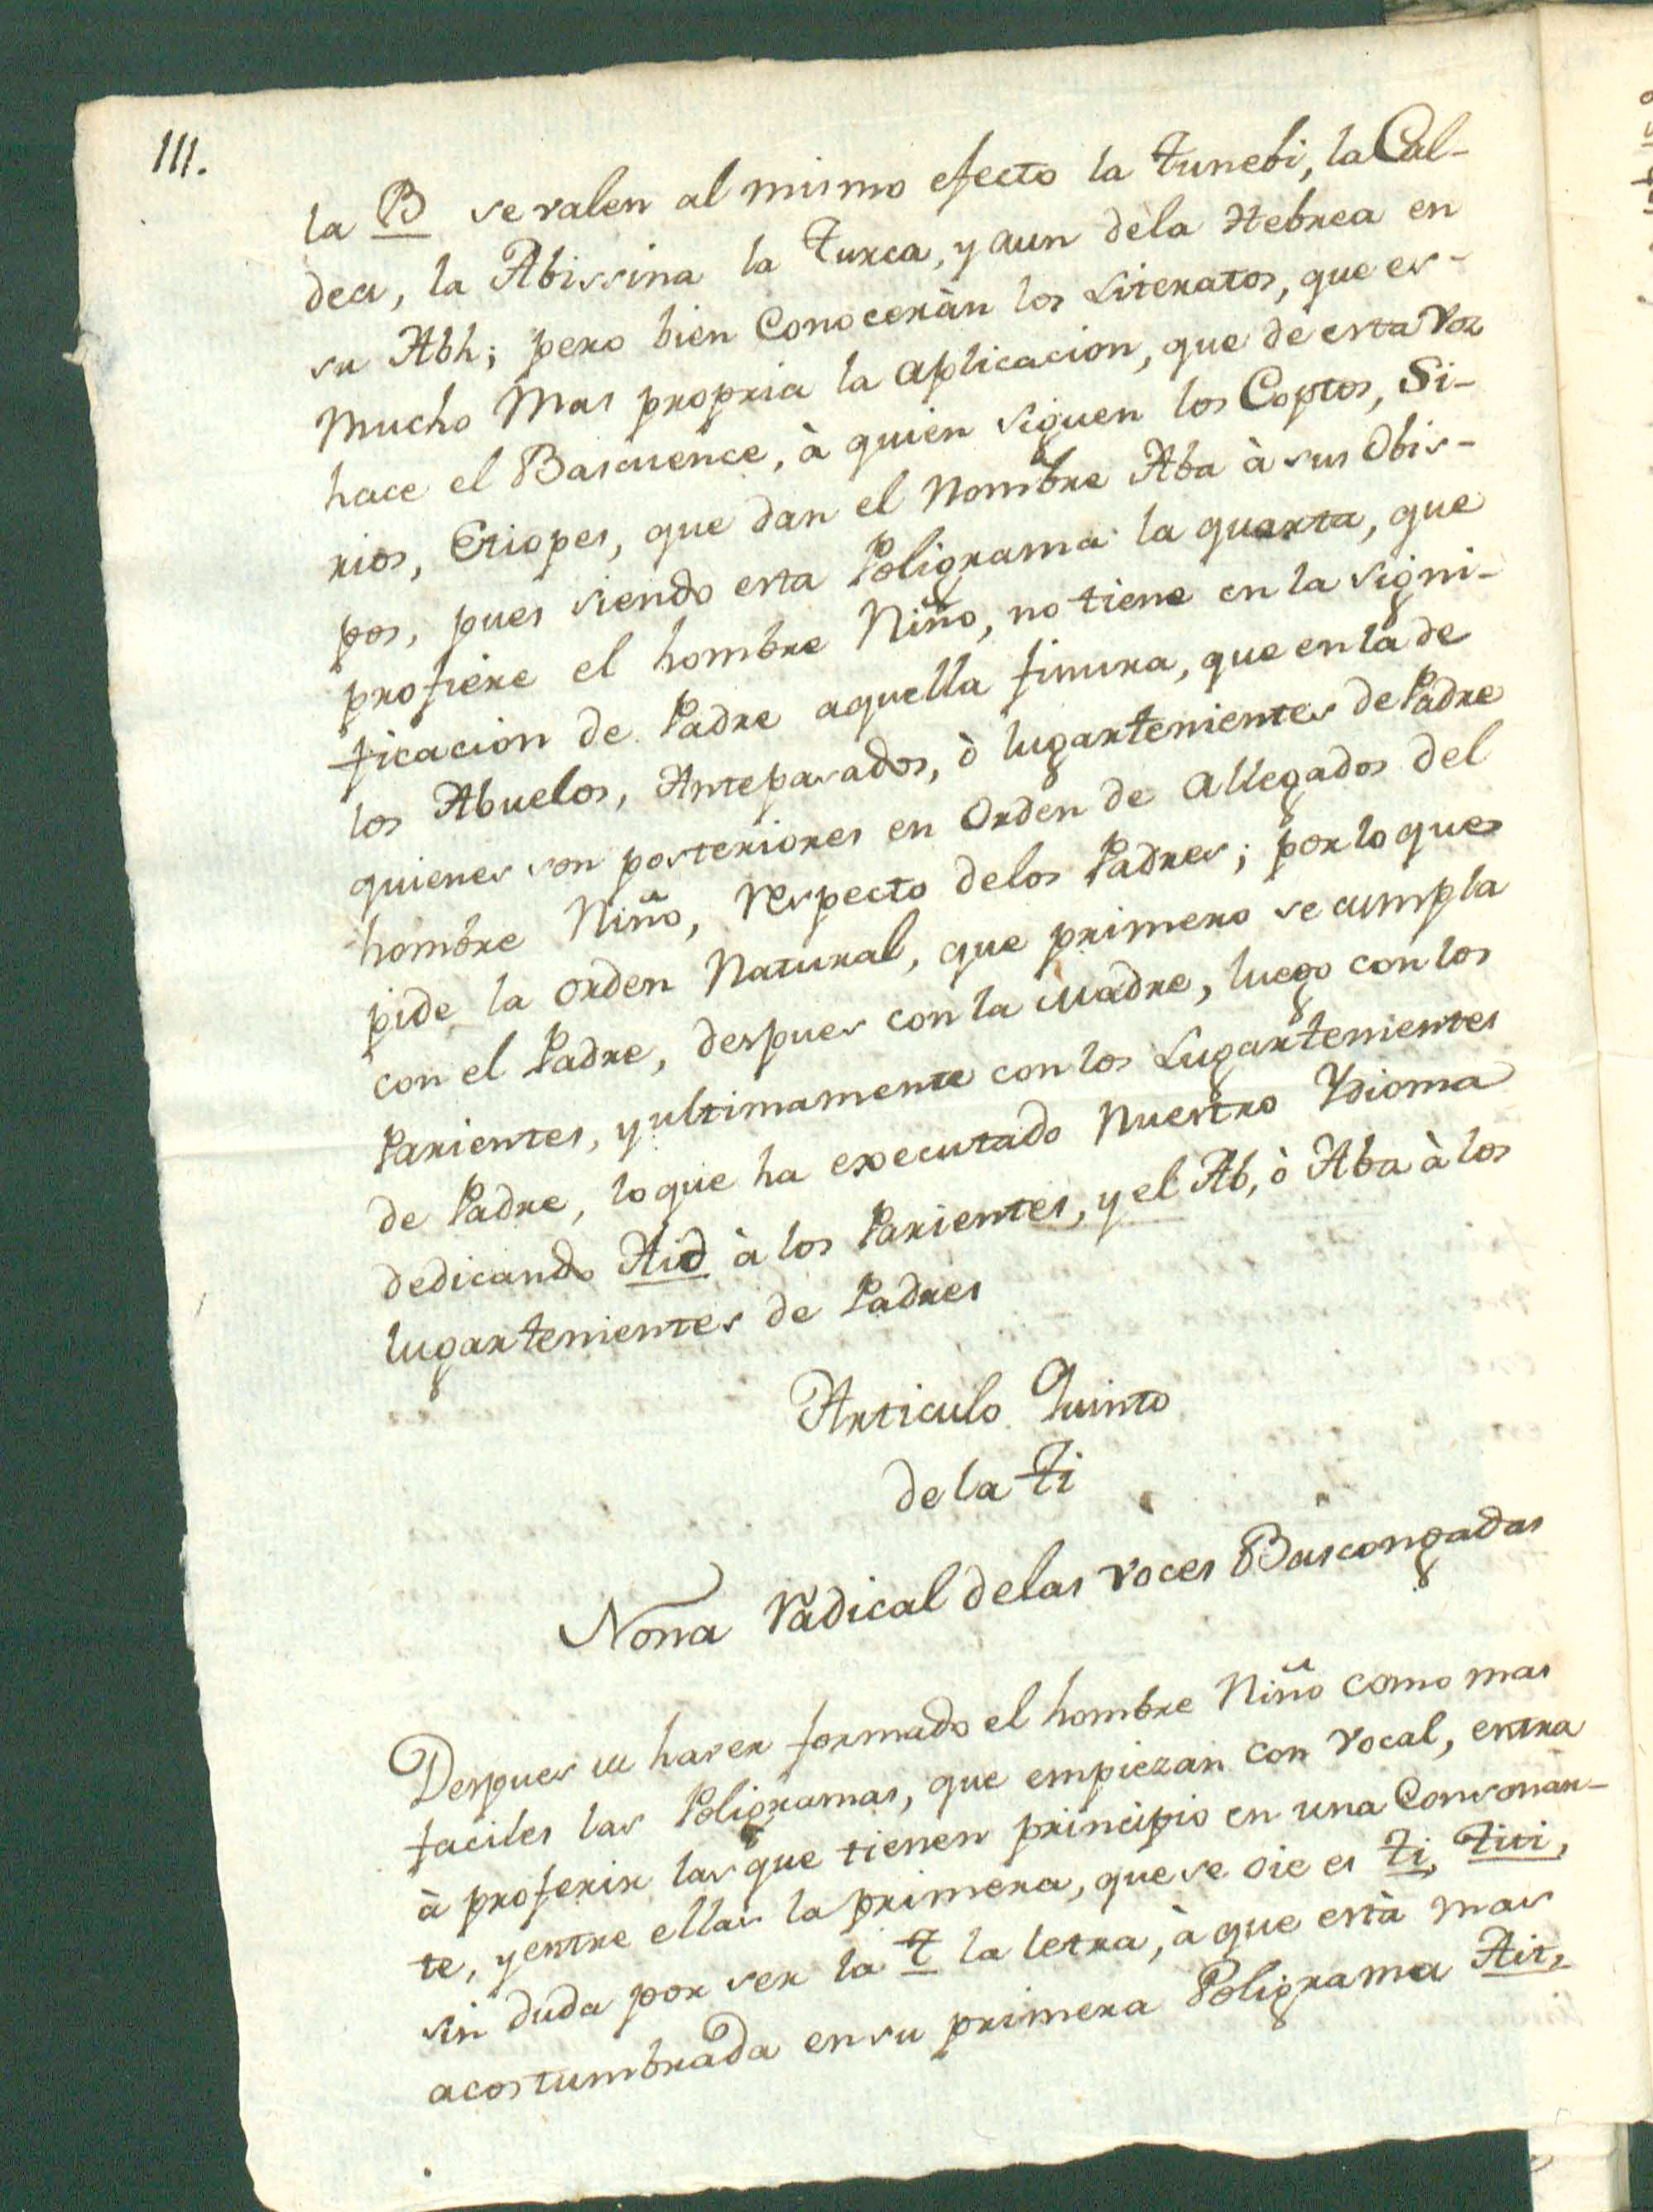 111.
la B se valen al mismo efecto la Tunebi, la Cal-
dea, la Abissina la Turca, y aun dela Hebrea en
su Abh; pero bien Conoceràn los Literatos, que es
mucho mas propria la aplicacion, que de esta voz
hace el Bascuence, à quien siguen los Coptos, Si-
rios, Etiopes, que dan el Nombre Aba à sus Obis-
pos, pues siendo esta Poligrama la quarta, que
profiere el hombre Niño, no tiene en la signi-
ficacion de Padre aquella finura, que en la de
los Abuelos, Antepasados, ò lugartenientes de Padre
quienes son posteriores en Orden de allegados del
hombre Niño, respecto delos Padres; por lo que
pide la orden Natural, que primero se cumpla
con el Padre, despues con la Madre, luego con los
Parientes, y ultimamente con los Lugartenientes
de Padre, lo que ha executado Nuestro Ydioma
dedicando Aid à los Parientes, y el Ab, ò Aba à los
lugartenientes de Padres
Articulo Quinto
de la Ti
Nona radical delas voces Bascongadas
Despues de haver formado el hombre Niño como mas
faciles las Poligramas, que empiezan con vocal, entra
à proferir las que tienen principio en una Consonan-
te, y entre ellas la primera, que se oie es Ti, Titi,
sin duda por ser la T la letra, à que està mas
acostumbrada en su primera Poligrama Ait,